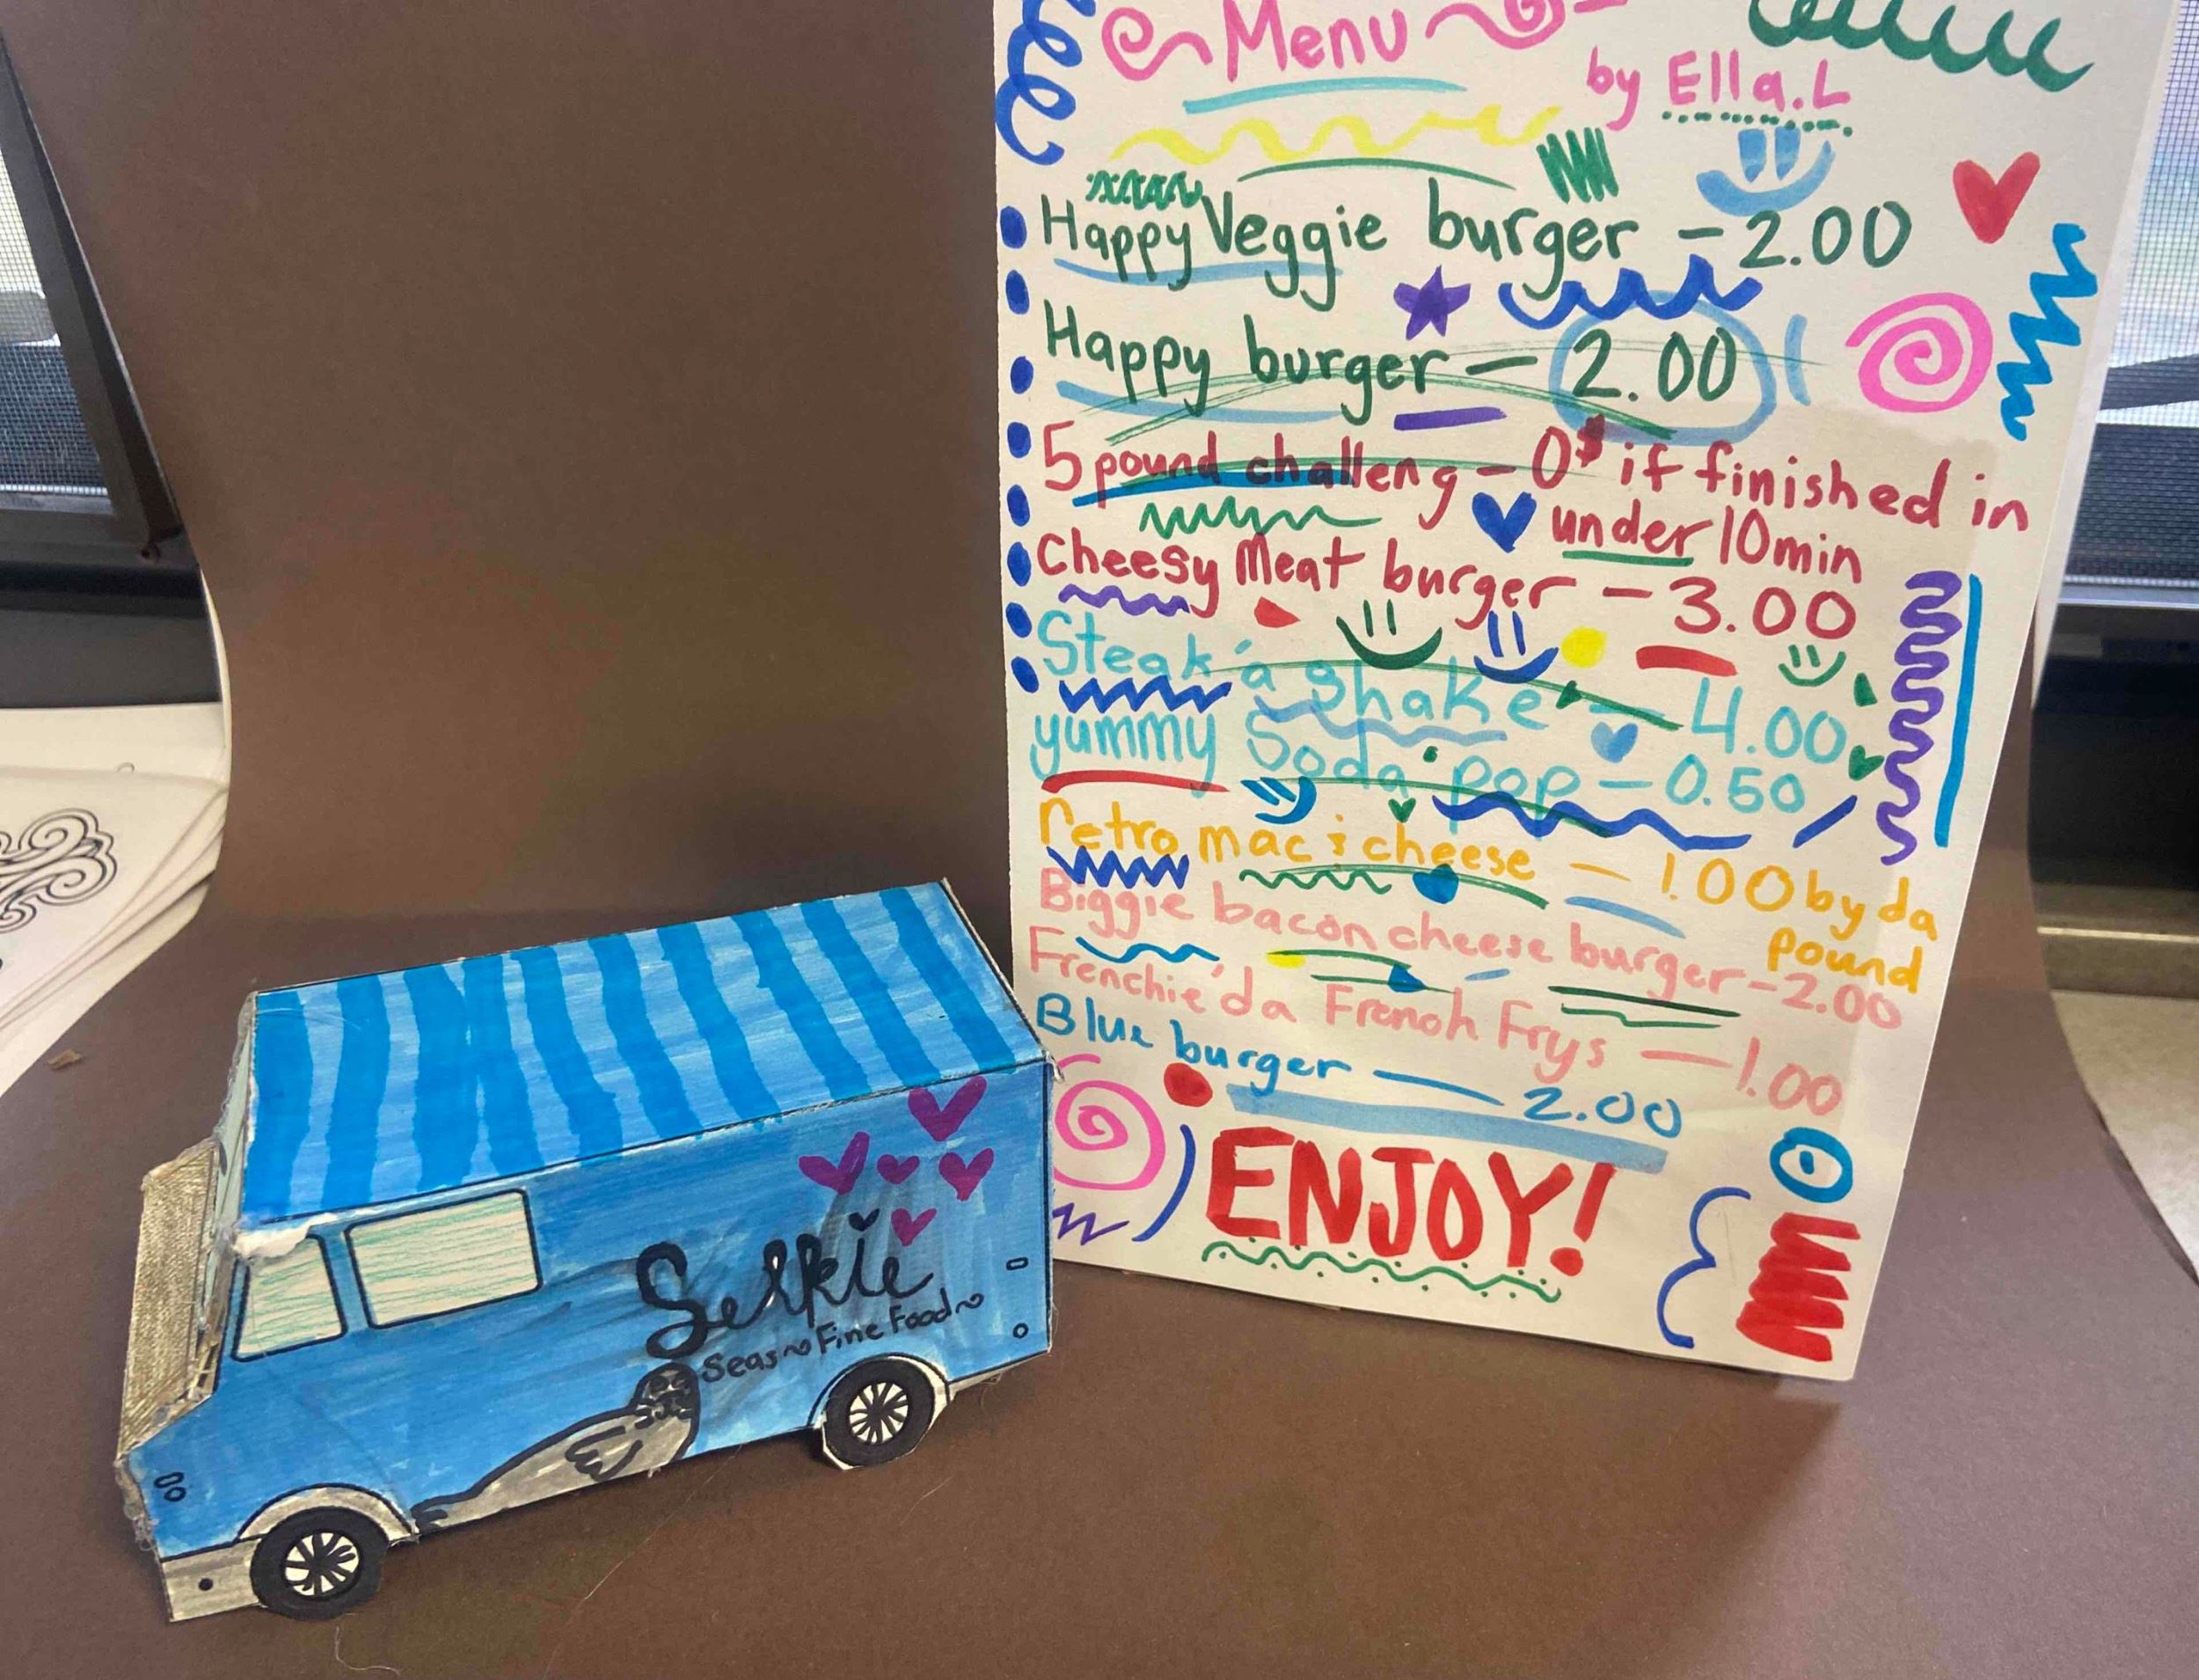 Menu
by Ella.L
Happy Veggie burger - 2.00
Happy burger - 2.00
5 pound challeng - 0$ if finished in
under 10min
Cheesy Meat burger - 3.00
Steak'a shake - 4.00
yummy Soda pop - 0.50
retro mac & cheese - 1.00 by da
pound
Biggie bacon cheese burger - 2.00
Frenchie'da French Frys - 1.00
Blue burger - 2.00
ENJOY!
Selkie
Seas~Fine Food~